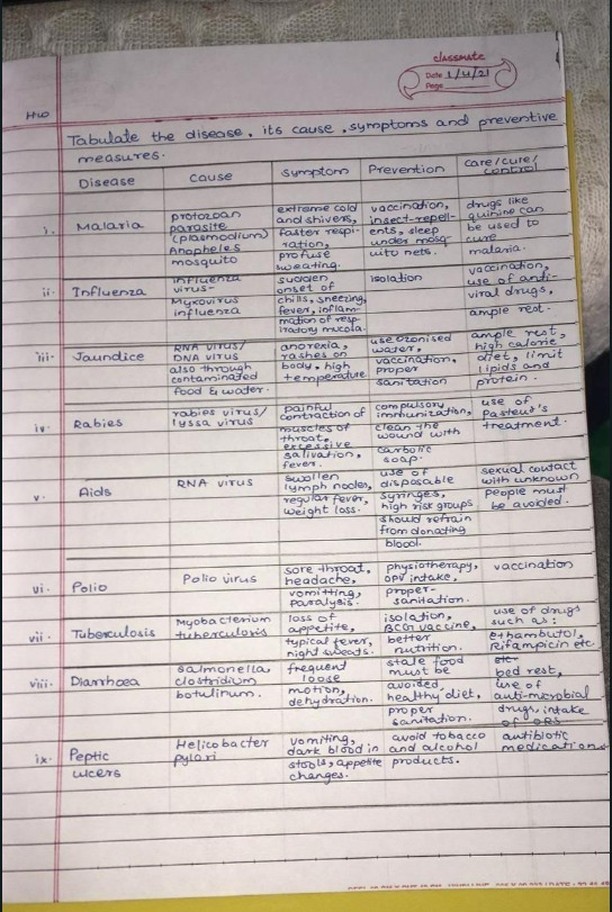 classmate
Date 1/4/21
Page
HW
Tabulate the disease, its cause, symptoms and preventive
measures.
Disease
Cause
Symptom
Prevention
Care/cure/
control
i.
Malaria
protozoan
parasite
(plasmodium)
Anopheles
mosquito
extreme cold
and shivers,
faster respi-
ration,
profuse
sweating.
vaccination,
insect-repell-
ents, sleep
under mosq-
uito nets.
drugs like
quinine can
be used to
cure
malaria.
ii.
Influenza
influenza
virus-
Myxovirus
influenza
sudden
onset of
chills, sneezing,
fever, inflam-
mation of resp-
iratory mucola.
isolation
vaccination,
use of anti-
viral drugs,
ample rest.
iii.
Jaundice
RNA virus/
DNA virus
also through
contaminated
food & water.
anorexia,
rashes on
body, high
temperature
use ozonised
water,
vaccination,
proper
sanitation
ample rest,
high calorie
diet, limit
lipids and
protein.
iv.
Rabies
rabies virus/
lyssa virus
painful
contraction of
muscles of
throat,
excessive
salivation,
fever.
compulsory
immunization,
clean the
wound with
carbolic
soap.
use of
Pasteur's
treatment.
v.
Aids
RNA virus
swollen
lymph nodes,
regular fever,
weight loss.
use of
disposable
syringes,
high risk groups
should refrain
from donating
blood.
sexual contact
with unknown
people must
be avoided.
vi.
Polio
Polio virus
sore throat,
headache,
vomitting,
paralysis.
physiotherapy,
OPV intake,
proper-
sanitation.
vaccination
vii.
Tuberculosis
Myobacterium
tuberculosis
loss of
appetite,
typical fever,
night sweats.
isolation,
BCG vaccine,
better
nutrition.
use of drugs
such as:
ethambutol,
rifampicin etc.
viii.
Diarrhoea
Salmonella
clostridium
botulinum.
frequent
loose
motion,
dehydration.
stale food
must be
avoided,
healthy diet,
proper
sanitation.
etc.
bed rest,
use of
anti-microbial
drugs, intake
of ORS
ix.
Peptic
ulcers
Helicobacter
pylori
vomiting,
dark blood in
stools, appetite
changes.
avoid tobacco
and alcohol
products.
antibiotic
medications